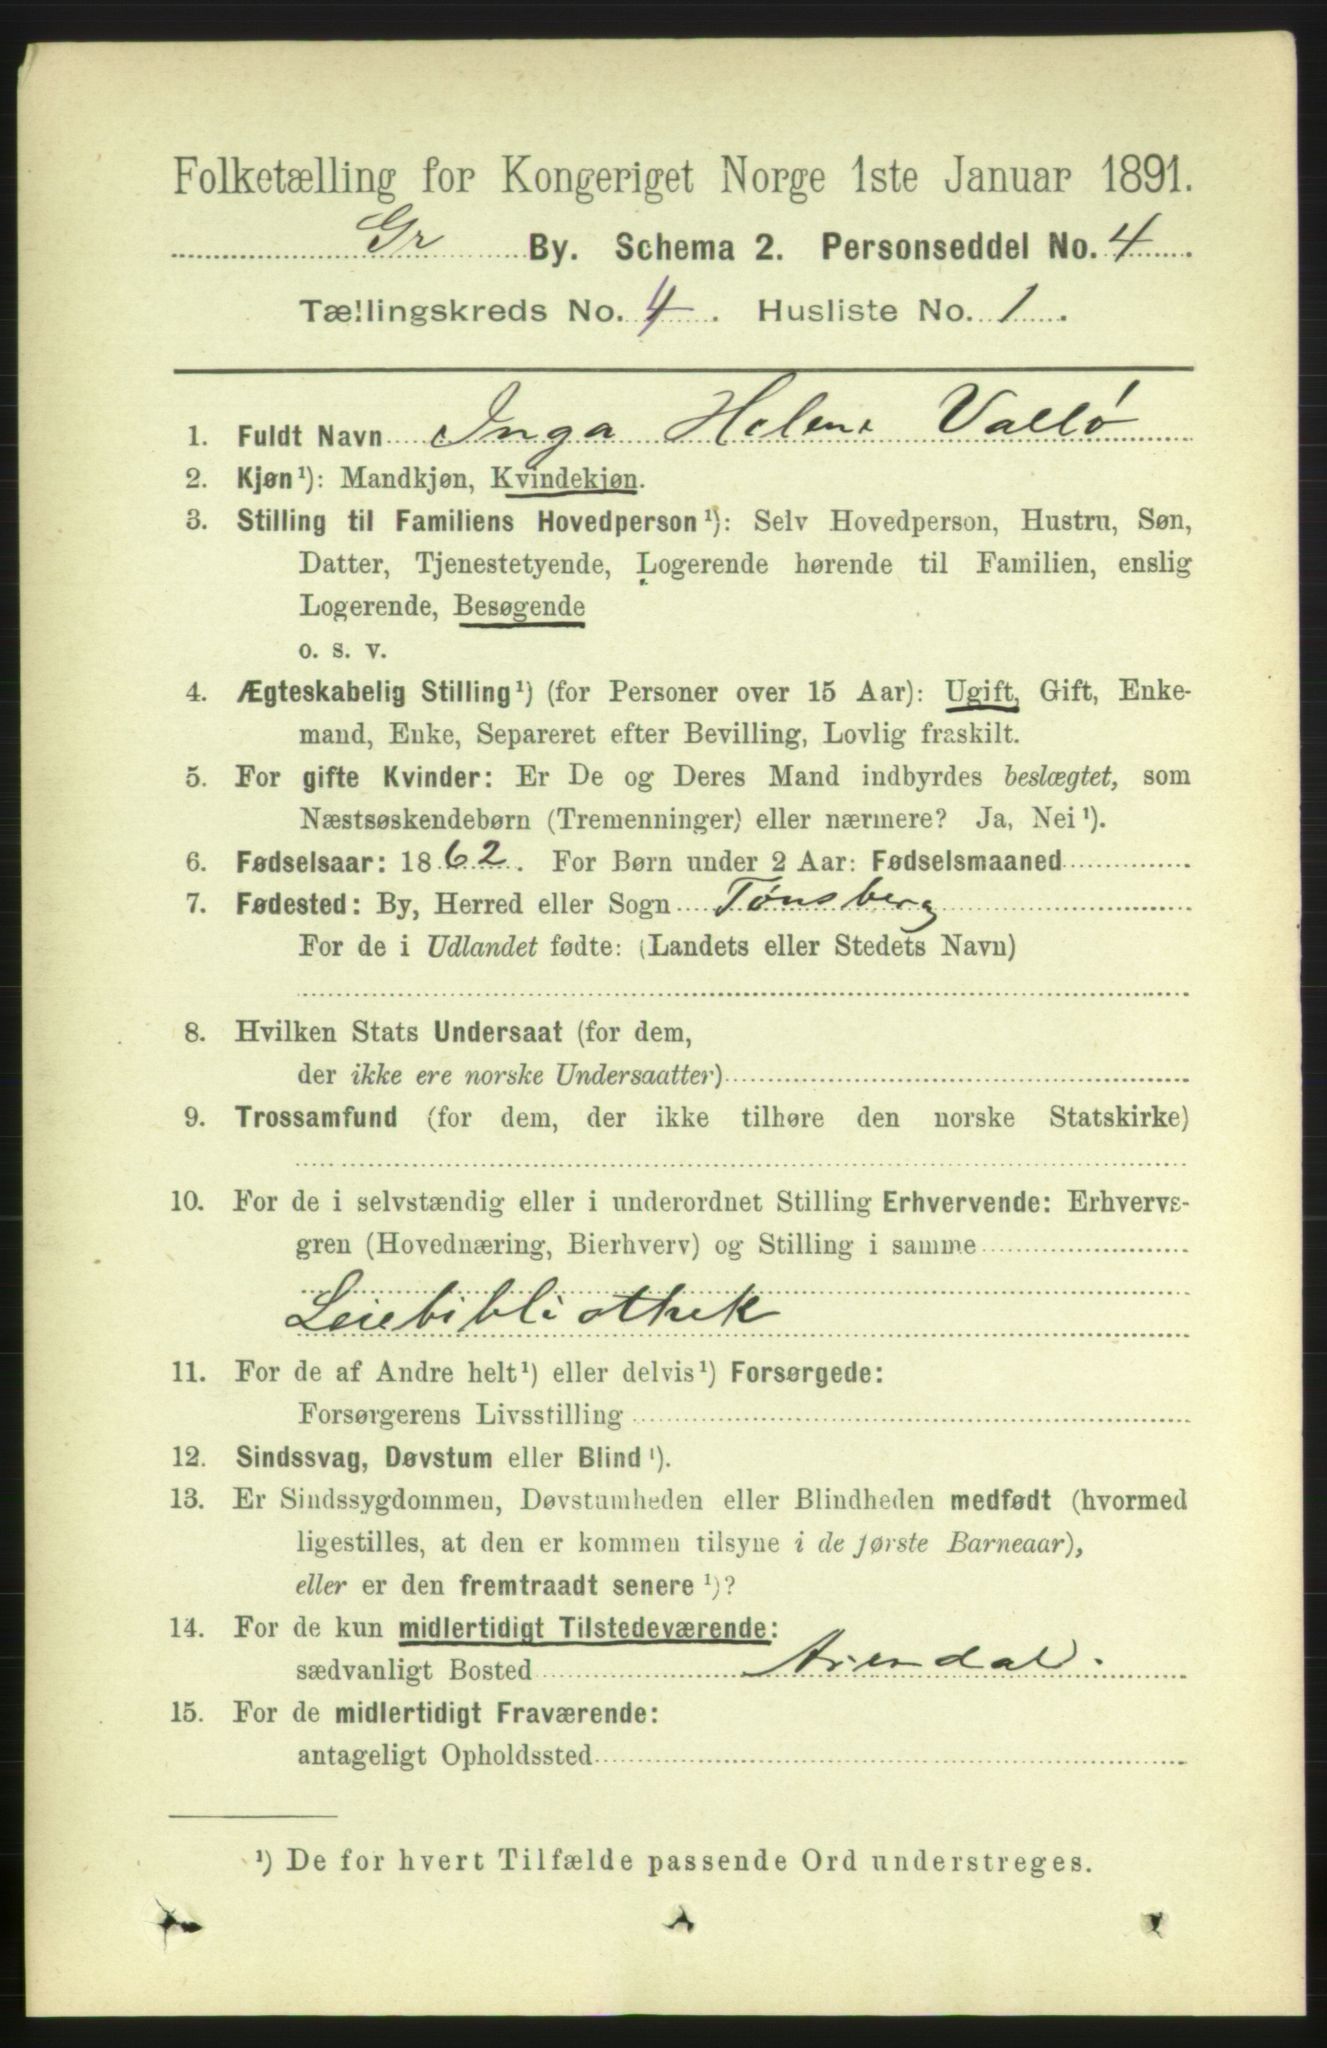 Folketælling for Kongeriget Norge 1ste Januar 1891.
Gr By. Schema 2. Personseddel No. 4
Tællingskreds No. 4. Husliste No. 1.
1. Fuldt Navn Inga Helene Vallø
2. Kjøn¹): Mandkjøn, Kvindekjøn.
3. Stilling til Familiens Hovedperson¹): Selv Hovedperson, Hustru, Søn,
Datter, Tjenestetyende, Logerende hørende til Familien, enslig
Logerende, Besøgende
o. s. v.
4. Ægteskabelig Stilling¹) (for Personer over 15 Aar): Ugift, Gift, Enke-
mand, Enke, Separeret efter Bevilling, Lovlig fraskilt.
5. For gifte Kvinder: Er De og Deres Mand indbyrdes beslægtet, som
Næstsøskendebørn (Tremenninger) eller nærmere? Ja, Nei¹).
6. Fødselsaar: 1862. For Børn under 2 Aar: Fødselsmaaned
7. Fødested: By, Herred eller Sogn Tønsberg
For de i Udlandet fødte: (Landets eller Stedets Navn)
8. Hvilken Stats Undersaat (for dem,
der ikke ere norske Undersaatter)
9. Trossamfund (for dem, der ikke tilhøre den norske Statskirke)
10. For de i selvstændig eller i underordnet Stilling Erhvervende: Erhvervs-
gren (Hovednæring, Bierhverv) og Stilling i samme
Leiebibliothek
11. For de af Andre helt¹) eller delvis¹) Forsørgede:
Forsørgerens Livsstilling
12. Sindssvag, Døvstum eller Blind¹).
13. Er Sindssygdommen, Døvstumheden eller Blindheden medfødt (hvormed
ligestilles, at den er kommen tilsyne i de første Barneaar),
eller er den fremtraadt senere¹)?
14. For de kun midlertidigt Tilstedeværende:
sædvanligt Bosted Arendal.
15. For de midlertidigt Fraværende:
antageligt Opholdssted
¹) De for hvert Tilfælde passende Ord understreges.